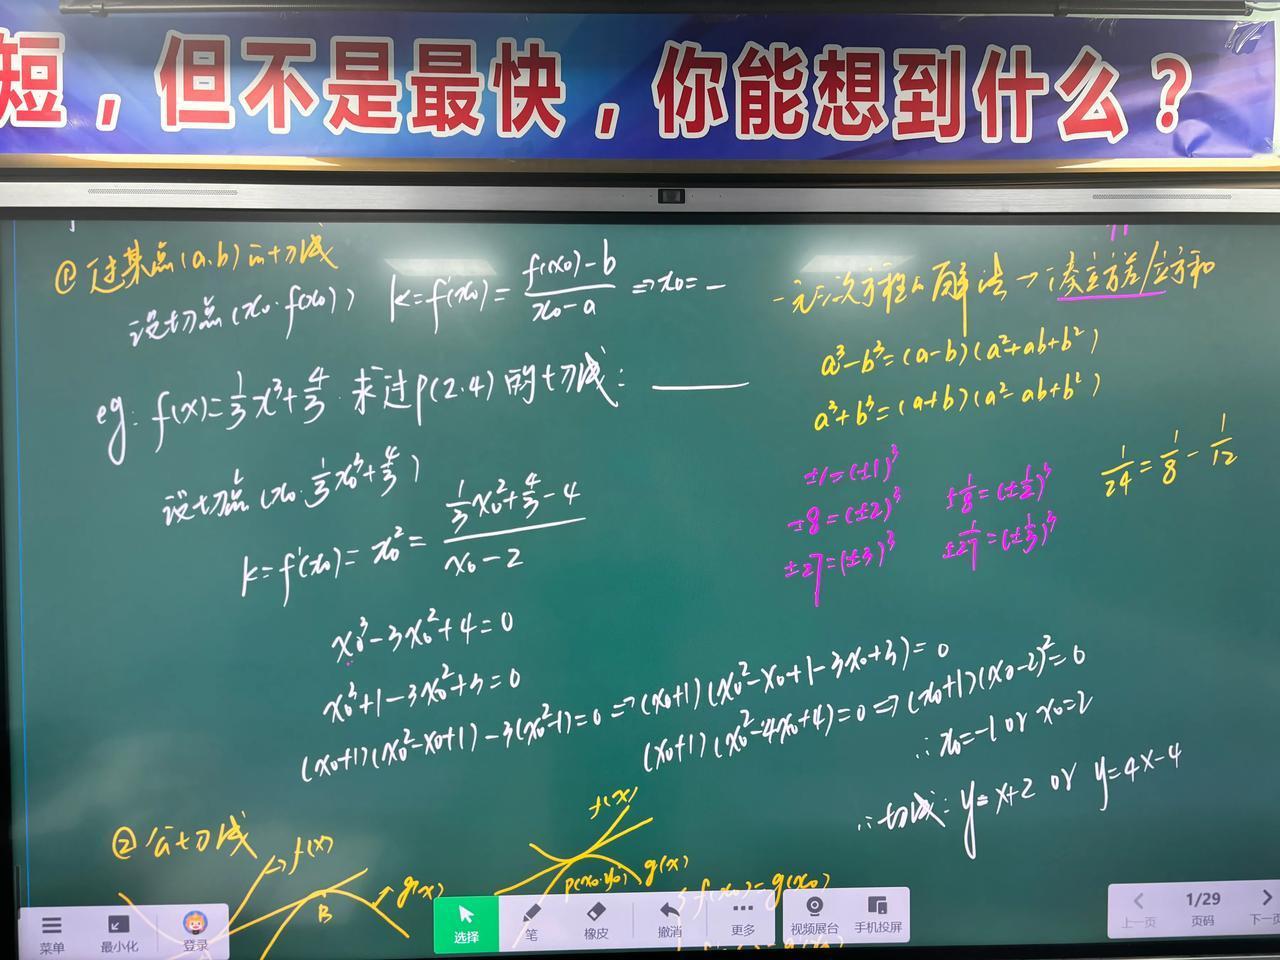 短，但不是最快，你能想到什么？
① 过某点(a.b)的切线
设切点(x₀.f(x₀)) k=f'(x₀)=\frac{f(x₀)-b}{x₀-a} ⇒x₀=_
eg: f(x)=\frac{1}{3}x³+\frac{4}{3}.求过P(2.4)的切线: ____
设切点(x₀.\frac{1}{3}x₀³+\frac{4}{3})
k=f'(x₀)=x₀²=\frac{\frac{1}{3}x₀²+\frac{4}{3}-4}{x₀-2}
x₀³-3x₀²+4=0
x₀³+1-3x₀²+3=0
(x₀+1)(x₀²-x₀+1)-3(x₀²-1)=0⇒(x₀+1)(x₀²-x₀+1-3x₀+3)=0
(x₀+1)(x₀²-4x₀+4)=0⇒(x₀+1)(x₀-2)²=0
∴x₀=-1 or x₀=2
∴切线:y=x+2 or y=4x-4
一元三次方程的解法→凑立方差/立方和
a³-b³=(a-b)(a²+ab+b²)
a³+b³=(a+b)(a²-ab+b²)
±1=(±1)³
±8=(±2)³ ±\frac{1}{8}=(±\frac{1}{2})³
±27=(±3)³ ±\frac{1}{27}=(±\frac{1}{3})³
\frac{1}{24}=\frac{1}{8}-\frac{1}{12}
② 公切线
f(x)
g(x)
B
f(x)
g(x)
P(x₀.y₀)
f(x₀)=g(x₀)
菜单 最小化 登录
选择 笔 橡皮 撤消 更多 视频展台 手机投屏
上一页 1/29 页码 下一页